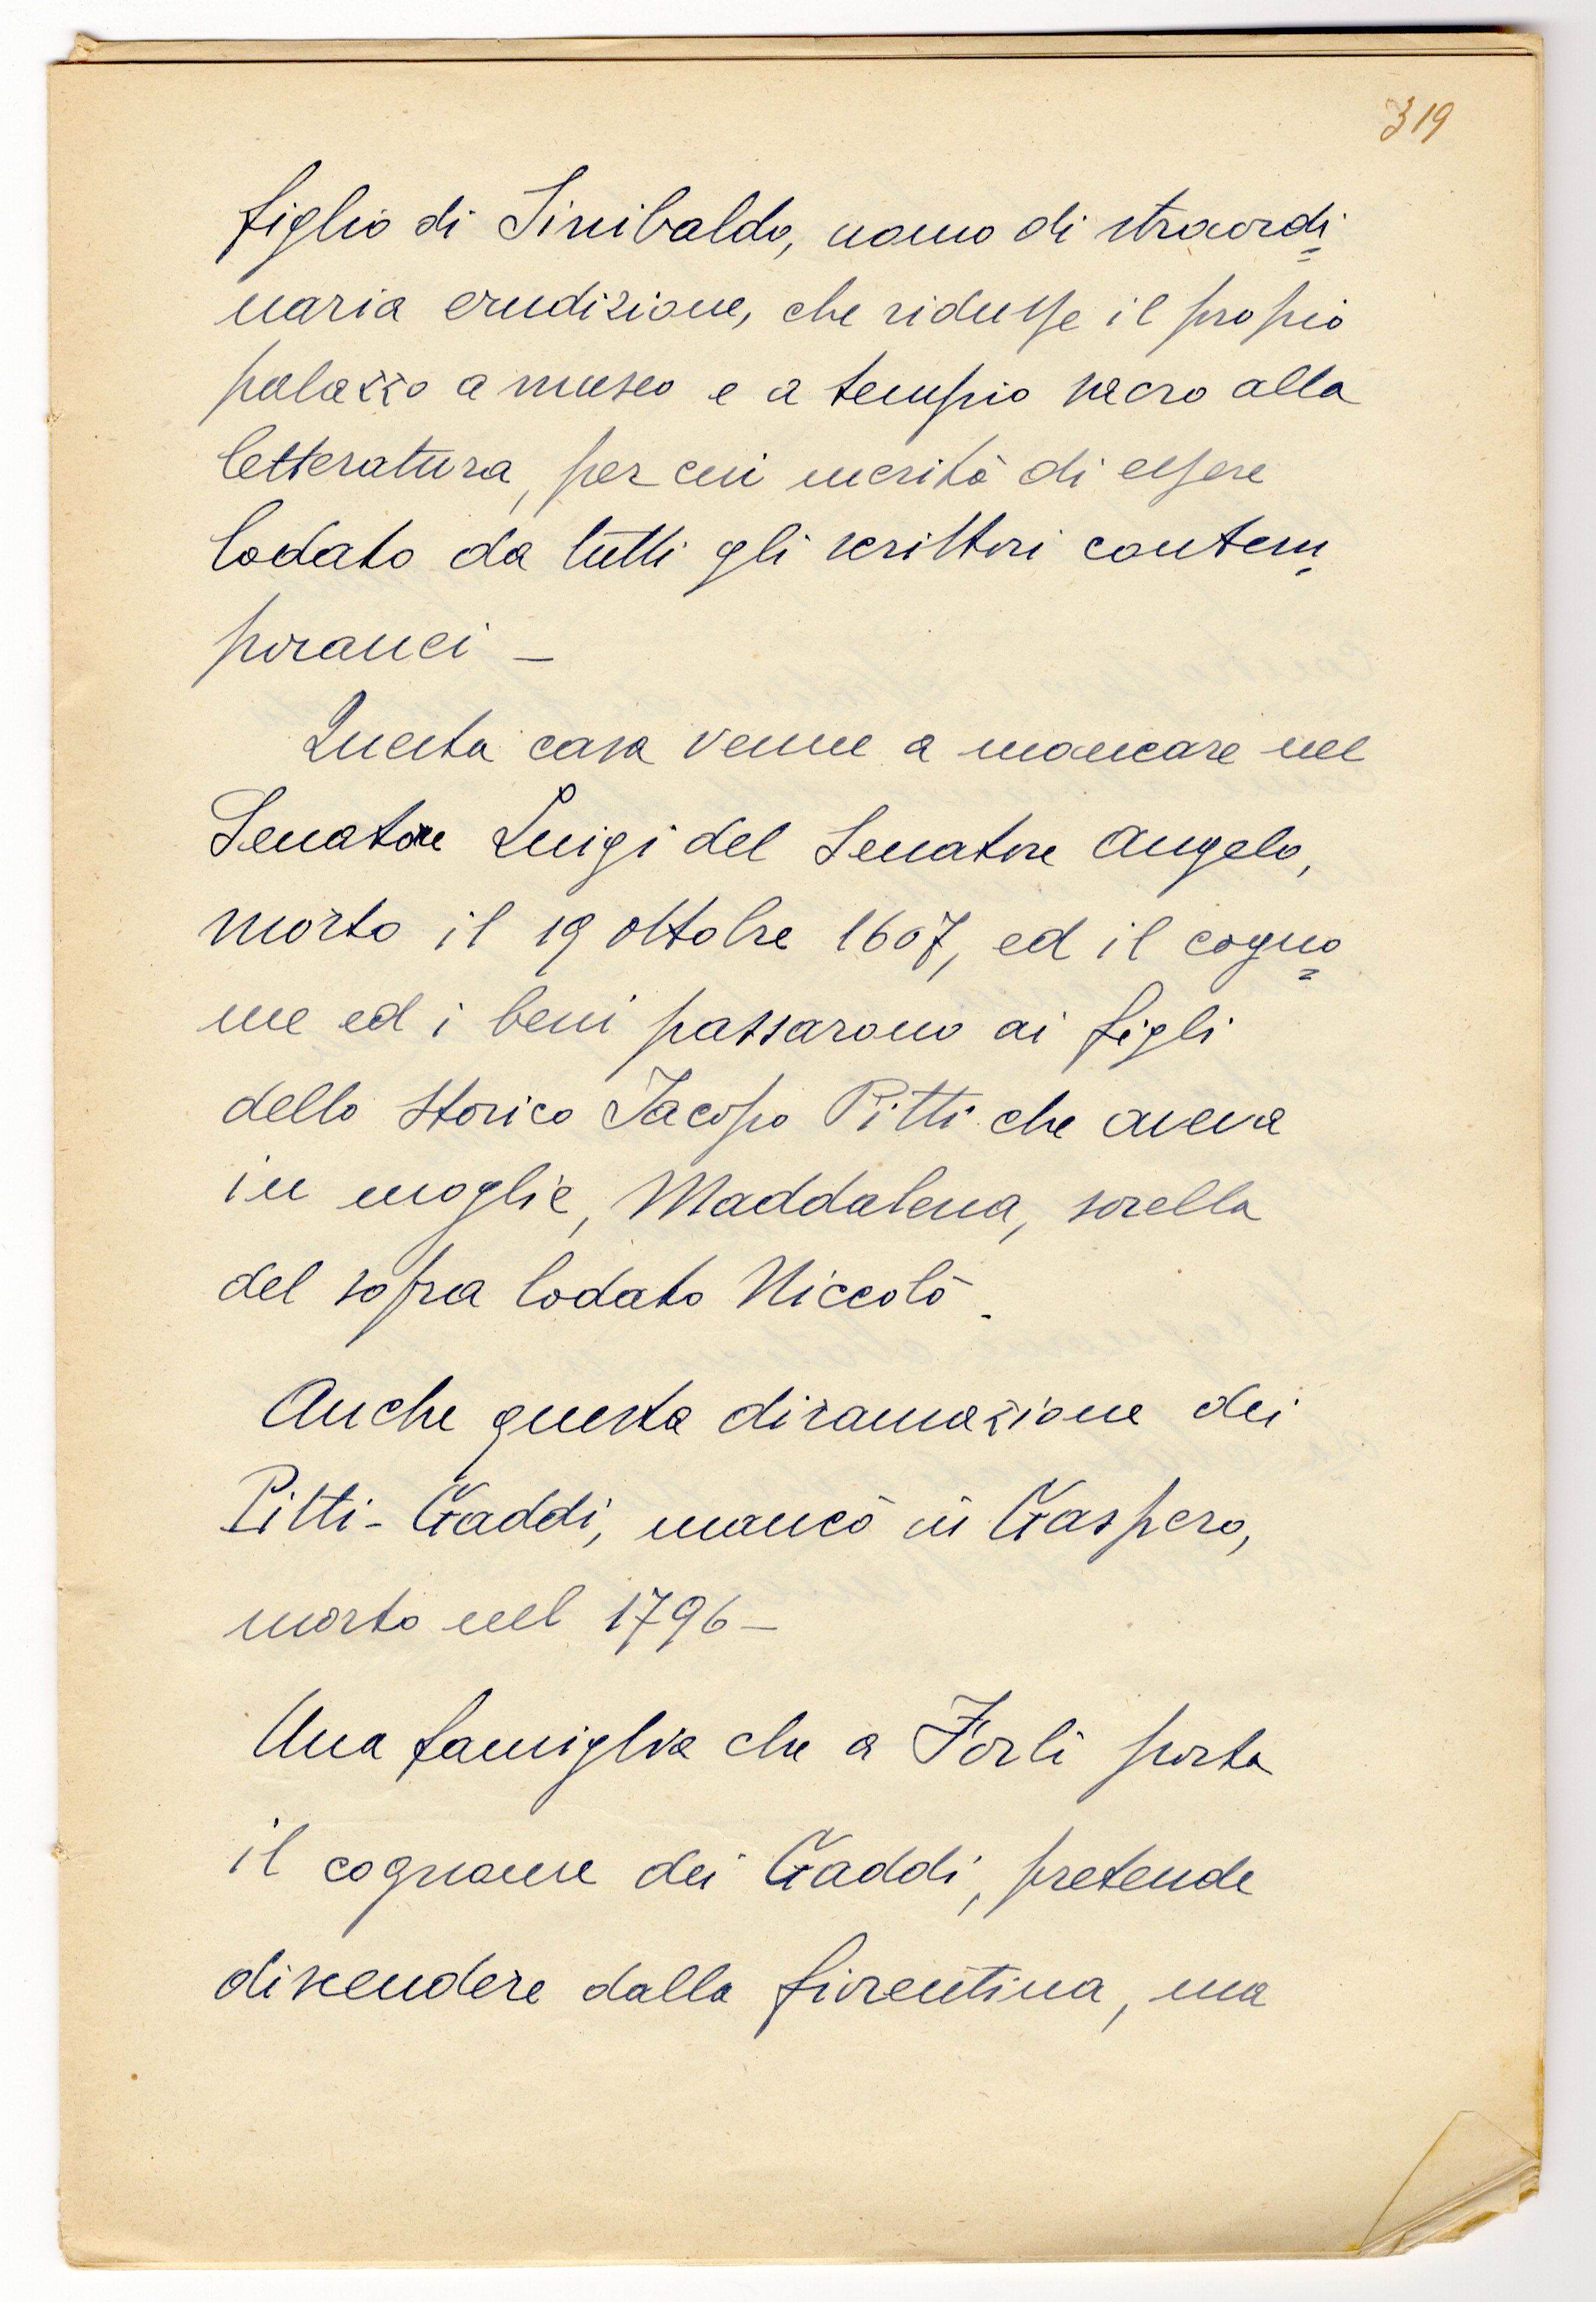 319
figlio di Sinibaldo, uomo di straordi=
naria erudizione, che ridusse il propio
palazzo a museo e a tempio sacro alla
letteratura, per cui meritò di essere
lodato da tutti gli scrittori contem-
poranei —
Questa casa venne a mancare nel
Senatore Luigi del Senatore Angelo,
morto il 19 ottobre 1607, ed il cogno=
me ed i beni passarono ai figli
dello storico Jacopo Pitti che aveva
in moglie, Maddalena, sorella
del sopra lodato Niccolò.
Anche questa diramazione dei
Pitti-Gaddi, mancò in Gaspero,
morto nel 1796 —
Una famiglia che a Forlì porta
il cognome dei Gaddi, pretende
discendere dalla fiorentina, ma